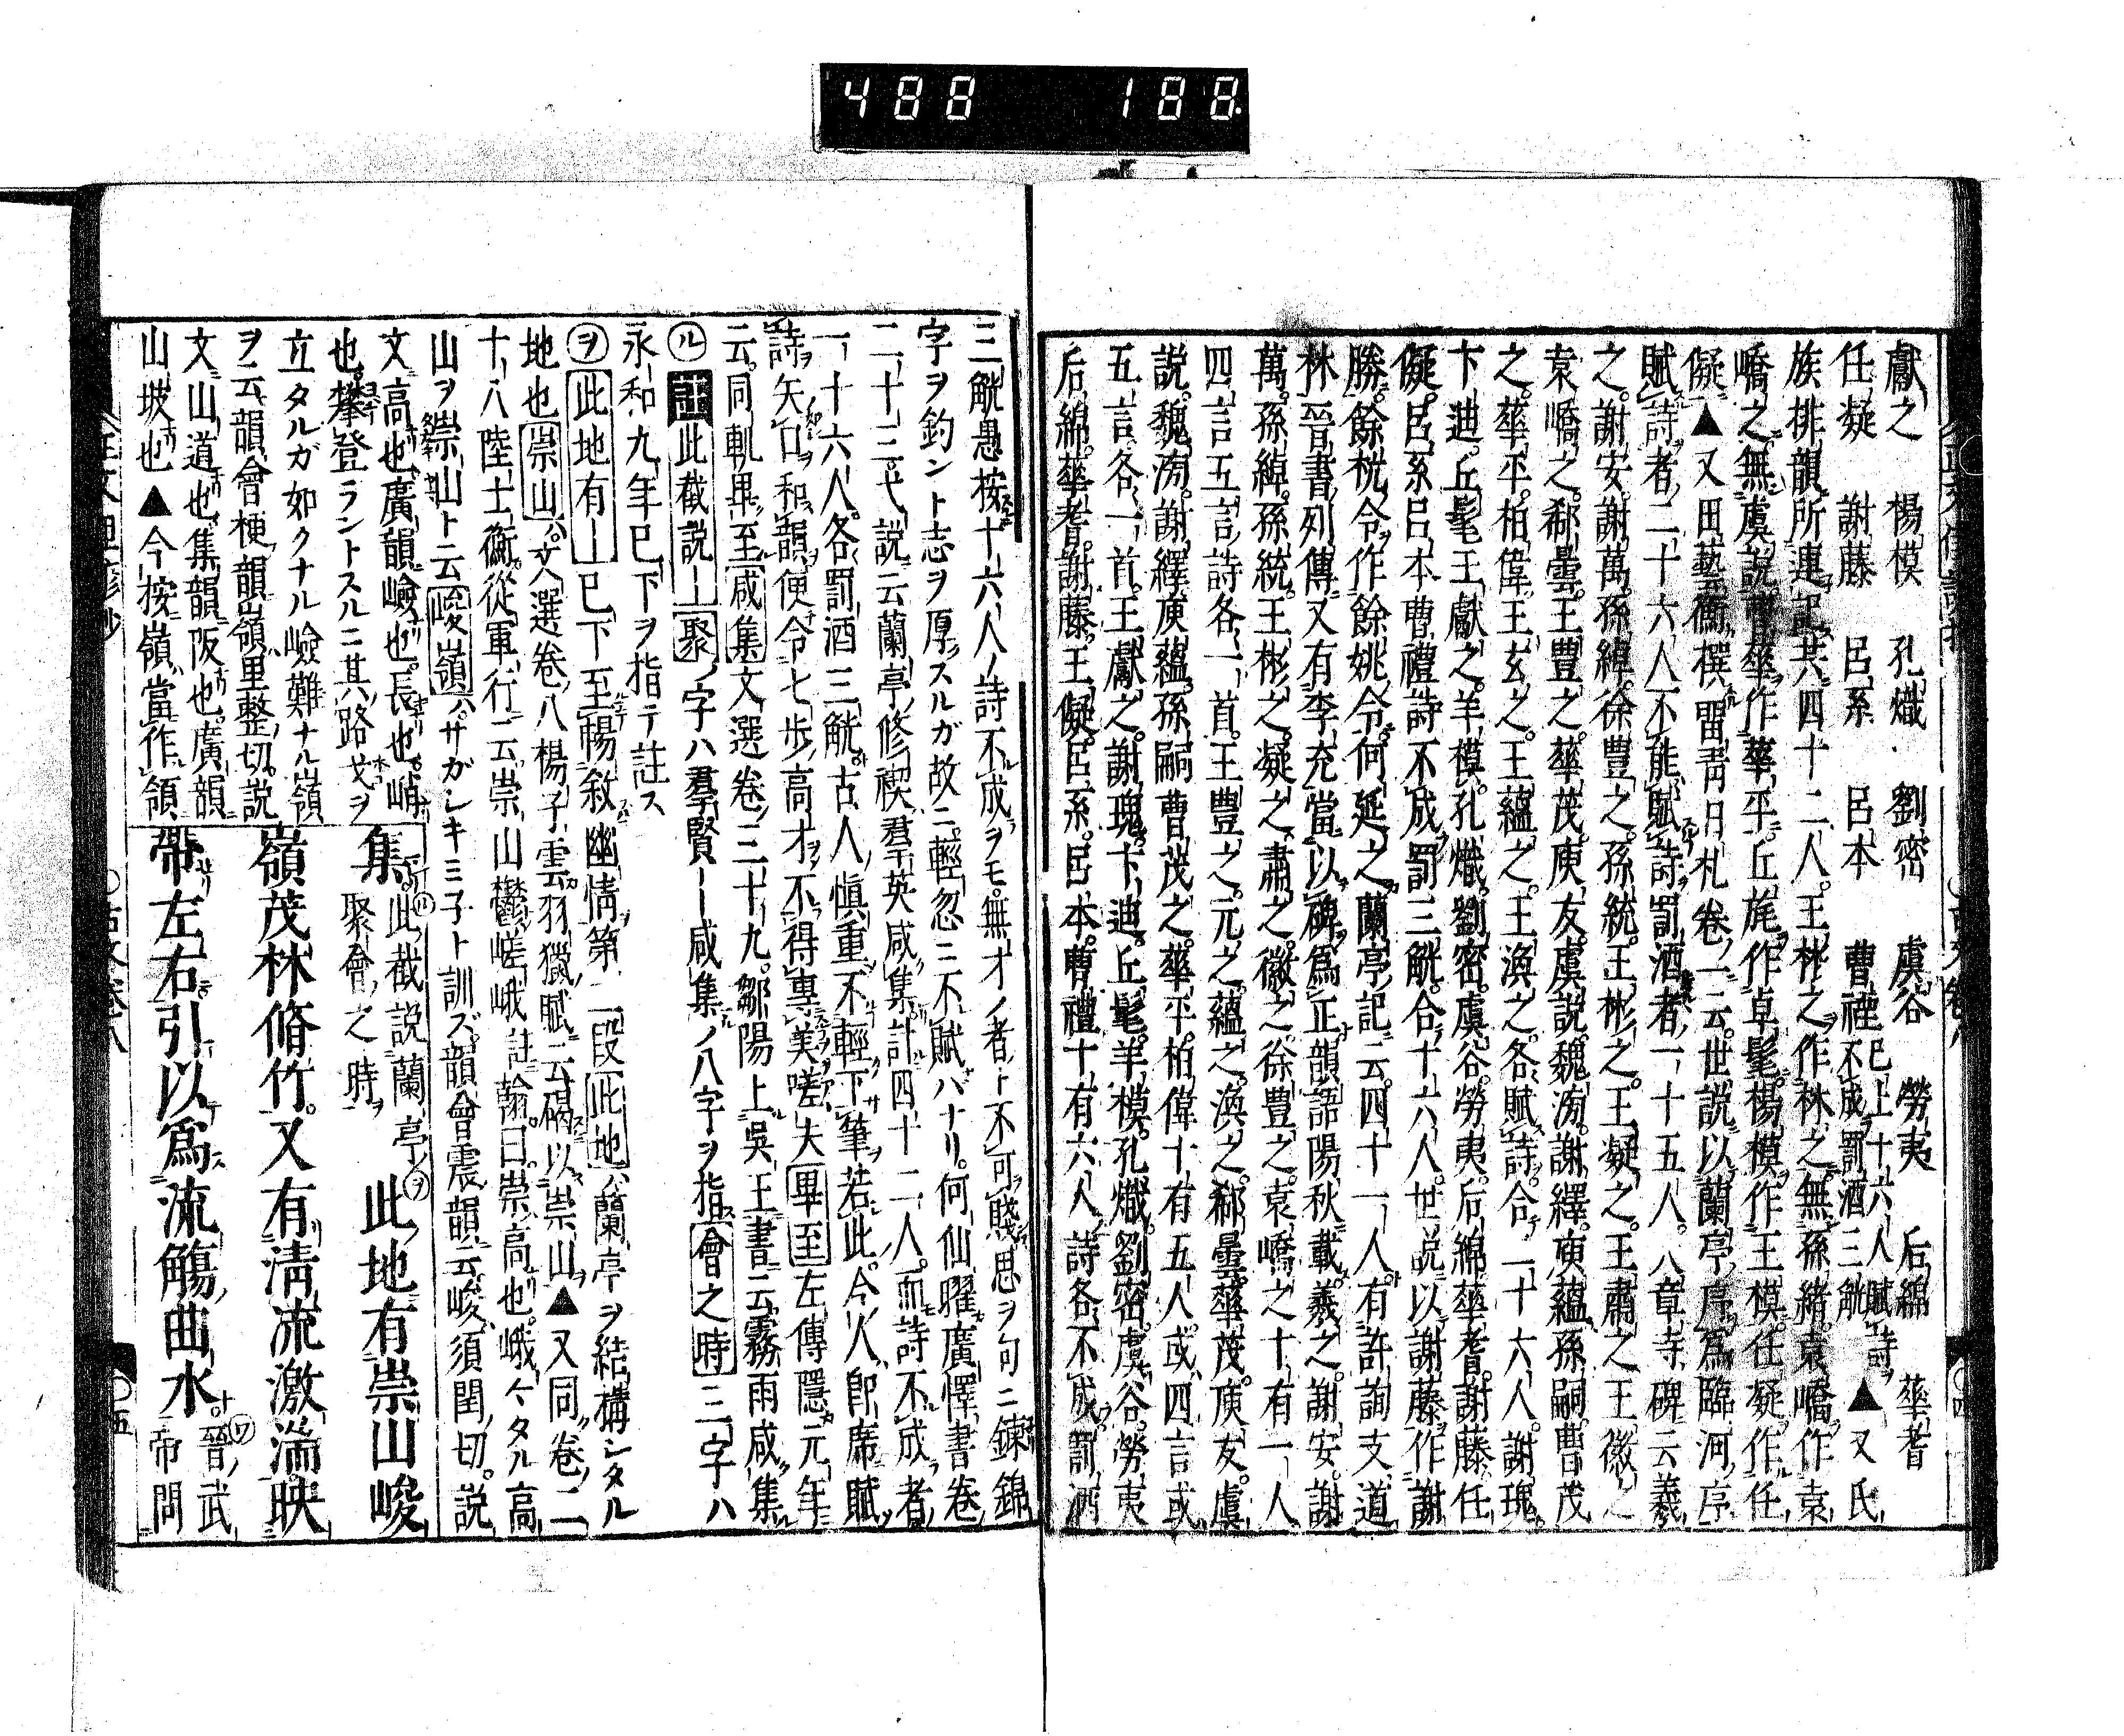 488 188
獻之 楊模 孔熾 劉密 虞谷 勞夷 后綿 華耆
任凝 謝藤 呂系 呂本 曹禋 已上十六人賦詩
不成罰酒三觥 ▲又氏
族排韻所連記共四十二人王林之作林之無孫緒袁嶠作袁
嶠之無虞説曹華作華平丘旄作卓髦楊模作王模任凝作任
儗▲又田藝衡撰留青日札卷一云世説以蘭亭序爲臨河序
賦詩者二十六人不能賦詩罰酒者一十五人八章寺碑云羲
之謝安謝萬孫綽徐豊之孫統王彬之王凝之王肅之王徽之
袁嶠之郗曇王豊之華茂庾友虞説魏滂謝繹庾蘊孫嗣曹茂
之華平柏偉王玄之王蘊之王渙之各賦詩合二十六人謝瑰
卞迪丘髦王獻之羊模孔熾劉密虞谷勞夷后綿華耆謝藤任
儗呂系呂本曹禮詩不成罰三觥合十六人世説以謝藤作謝
勝餘杭令作餘姚令何延之蘭亭記云四十一人有許詢支道
林晉書列傳又有李充當以碑爲正韻語陽秋載羲之謝安謝
萬孫綽孫統王彬之凝之肅之徽之徐豊之袁嶠之十有一人
四言五言詩各一首王豊之元之蘊之渙之郗曇華茂庾友虞
説魏滂謝繹庾蘊孫嗣曹茂之華平柏偉十有五人或四言或
五言各一首王獻之謝瑰卞迪丘髦羊模孔熾劉密虞谷勞夷
后綿華耆謝藤王儗呂系呂本曹禮十有六人詩各不成罰酒
三觥愚按十六人ノ詩不成ヲモ無才ノ者ト不可賤思ヲ句ニ鍊錦
字ヲ釣ント志ヲ厚スルガ故ニ輕忽ニ不賦ハナリ何仙曜廣懌書卷
二十三弋説云蘭亭修禊羣英咸集計四十二人而詩不成者
一十六人各罰酒三觥古人愼重不輕下筆若此今人卽席賦
詩矢口和韻便令七歩高才不得專美嗟夫畢至左傳隱元年
云同軌畢至咸集文選卷三十九鄒陽上吳王書云霧雨咸集
ル註此截説—聚ノ字ハ羣賢——咸集ノ八字ヲ指會之時三字ハ
永和九年巳下ヲ指テ註ス
ヲ此地有—巳下至暢敘幽情第二段此地ハ蘭亭ヲ結構シタル
地也崇山ハ文選卷八楊子雲羽獵賦云碣以崇山▲又同卷二
十八陸士衡從軍行云崇山鬱嵯峨註翰曰崇高也峨々タル高
山ヲ崇山ト云峻嶺ハサガシキミ子ト訓ズ韻會震韻云峻須閏切説
文高也廣韻嶮也長也峭
也攀登ラントスルニ其路戈ヲ
立タルガ如クナル嶮難ナル嶺
ヲ云韻會梗韻嶺里整切説
文山道也集韻阪也廣韻
山坡也▲今按嶺當作領
集ル此截説蘭亭
聚會之時ヲ此地有崇山峻
嶺茂林脩竹又有清流激湍映
帶左右引以爲流觴曲水ワ晉武
帝問
古文卷八
五